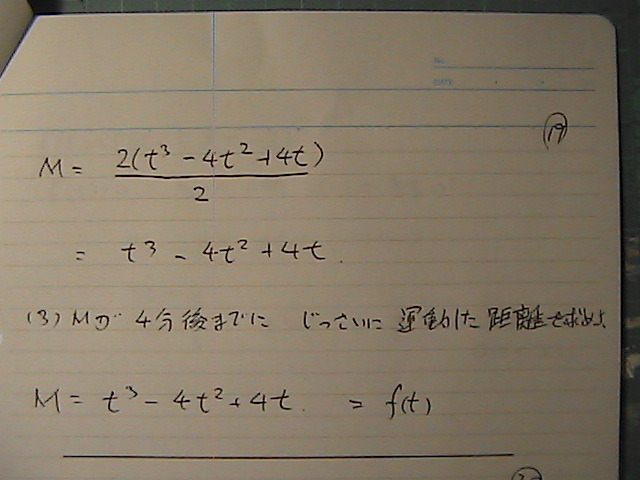 No.
DATE
19
M = 2(t³ - 4t² + 4t) / 2
= t³ - 4t² + 4t.
(3) Mが 4分後までに じっさいに 運動した 距離を求めよ
M = t³ - 4t² + 4t. = f(t)